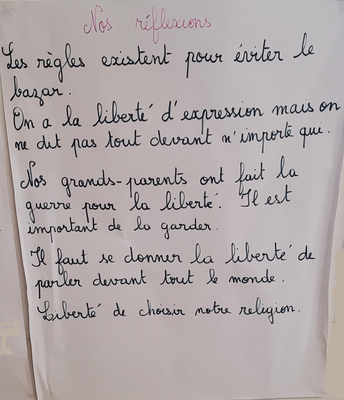 Nos réflexions
Les règles existent pour éviter le
bazar.
On a la liberté d'expression mais on
ne dit pas tout devant n'importe qui.
Nos grands-parents ont fait la
guerre pour la liberté. Il est
important de la garder.
Il faut se donner la liberté de
parler devant tout le monde.
Liberté de choisir notre religion.